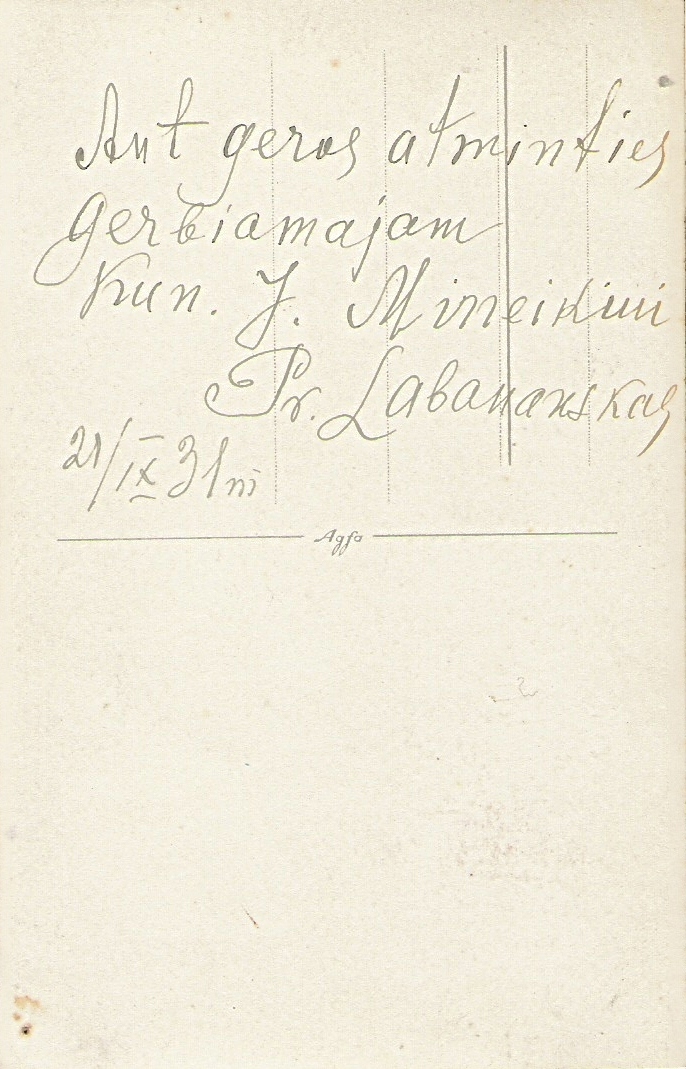 Ant geros atminties
gerbiamajam
kun. J. Mineikiui
Pr. Labanauskas
21/IX 31 m
Agfa